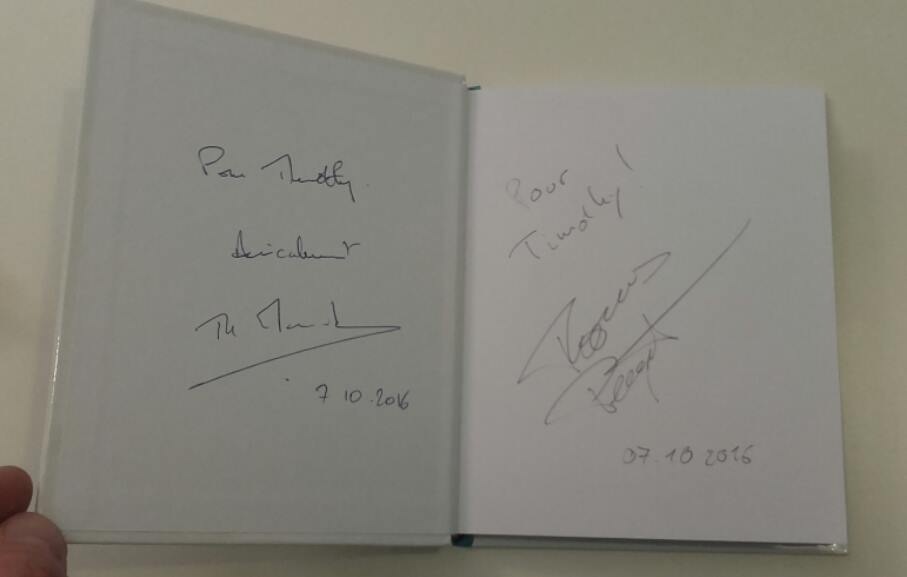 Pour Timothy.
Amicalement
7 10.2016
Pour
Timothy!
Thomas
07.10 2016